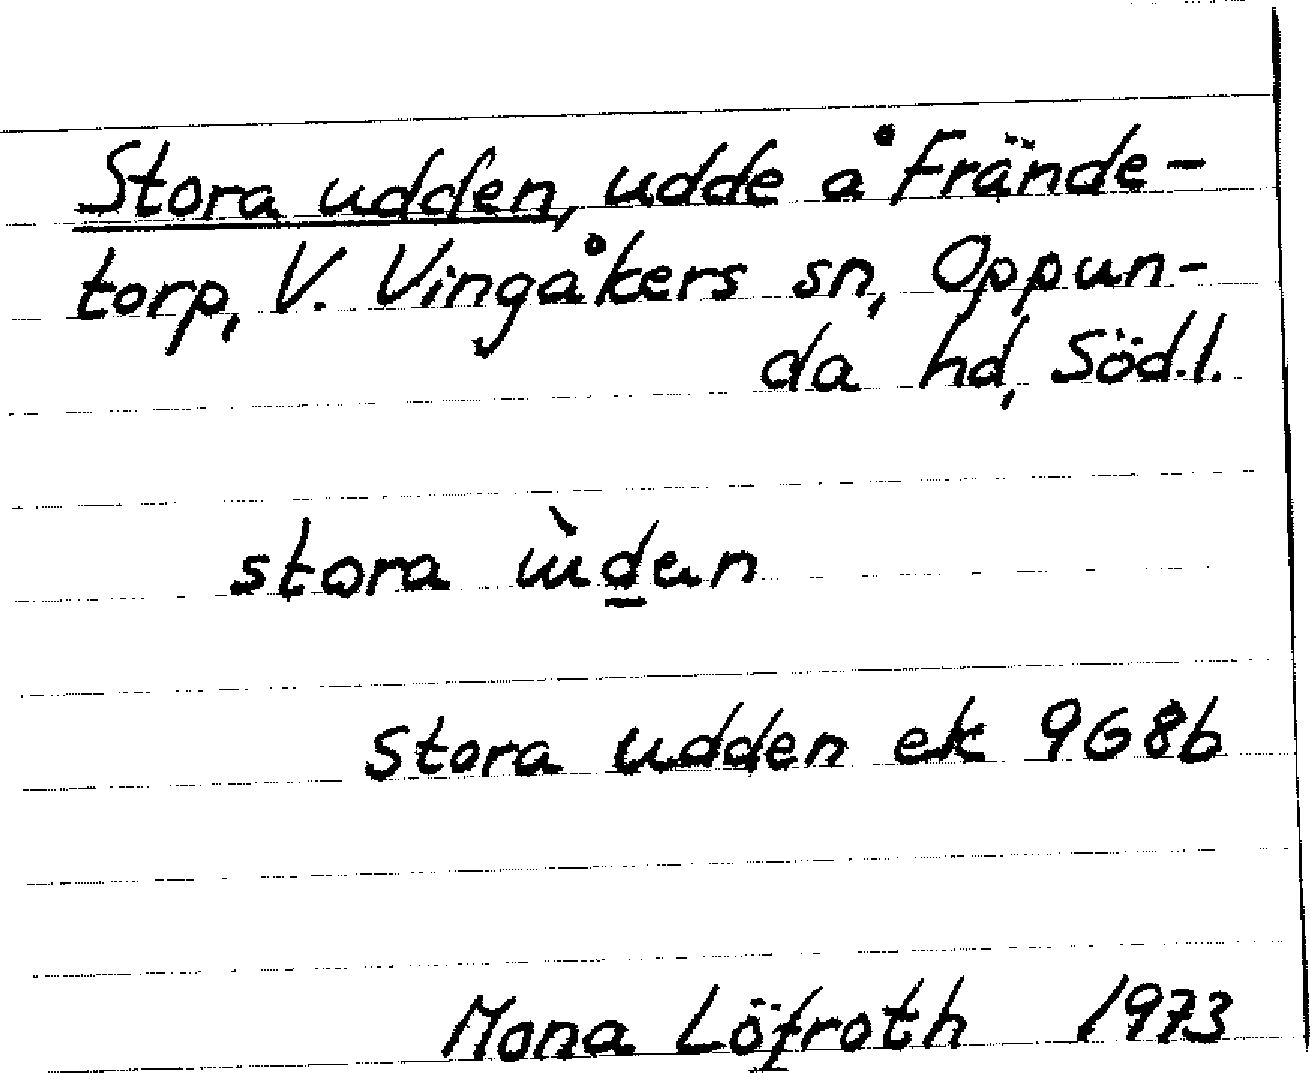 Stora udden, udde å Frände-
torp, V. Vingåkers sn, Oppun-
da hd, Söd.l.
stora
Stora udden ek 9G8b
Mona Löfroth 1973